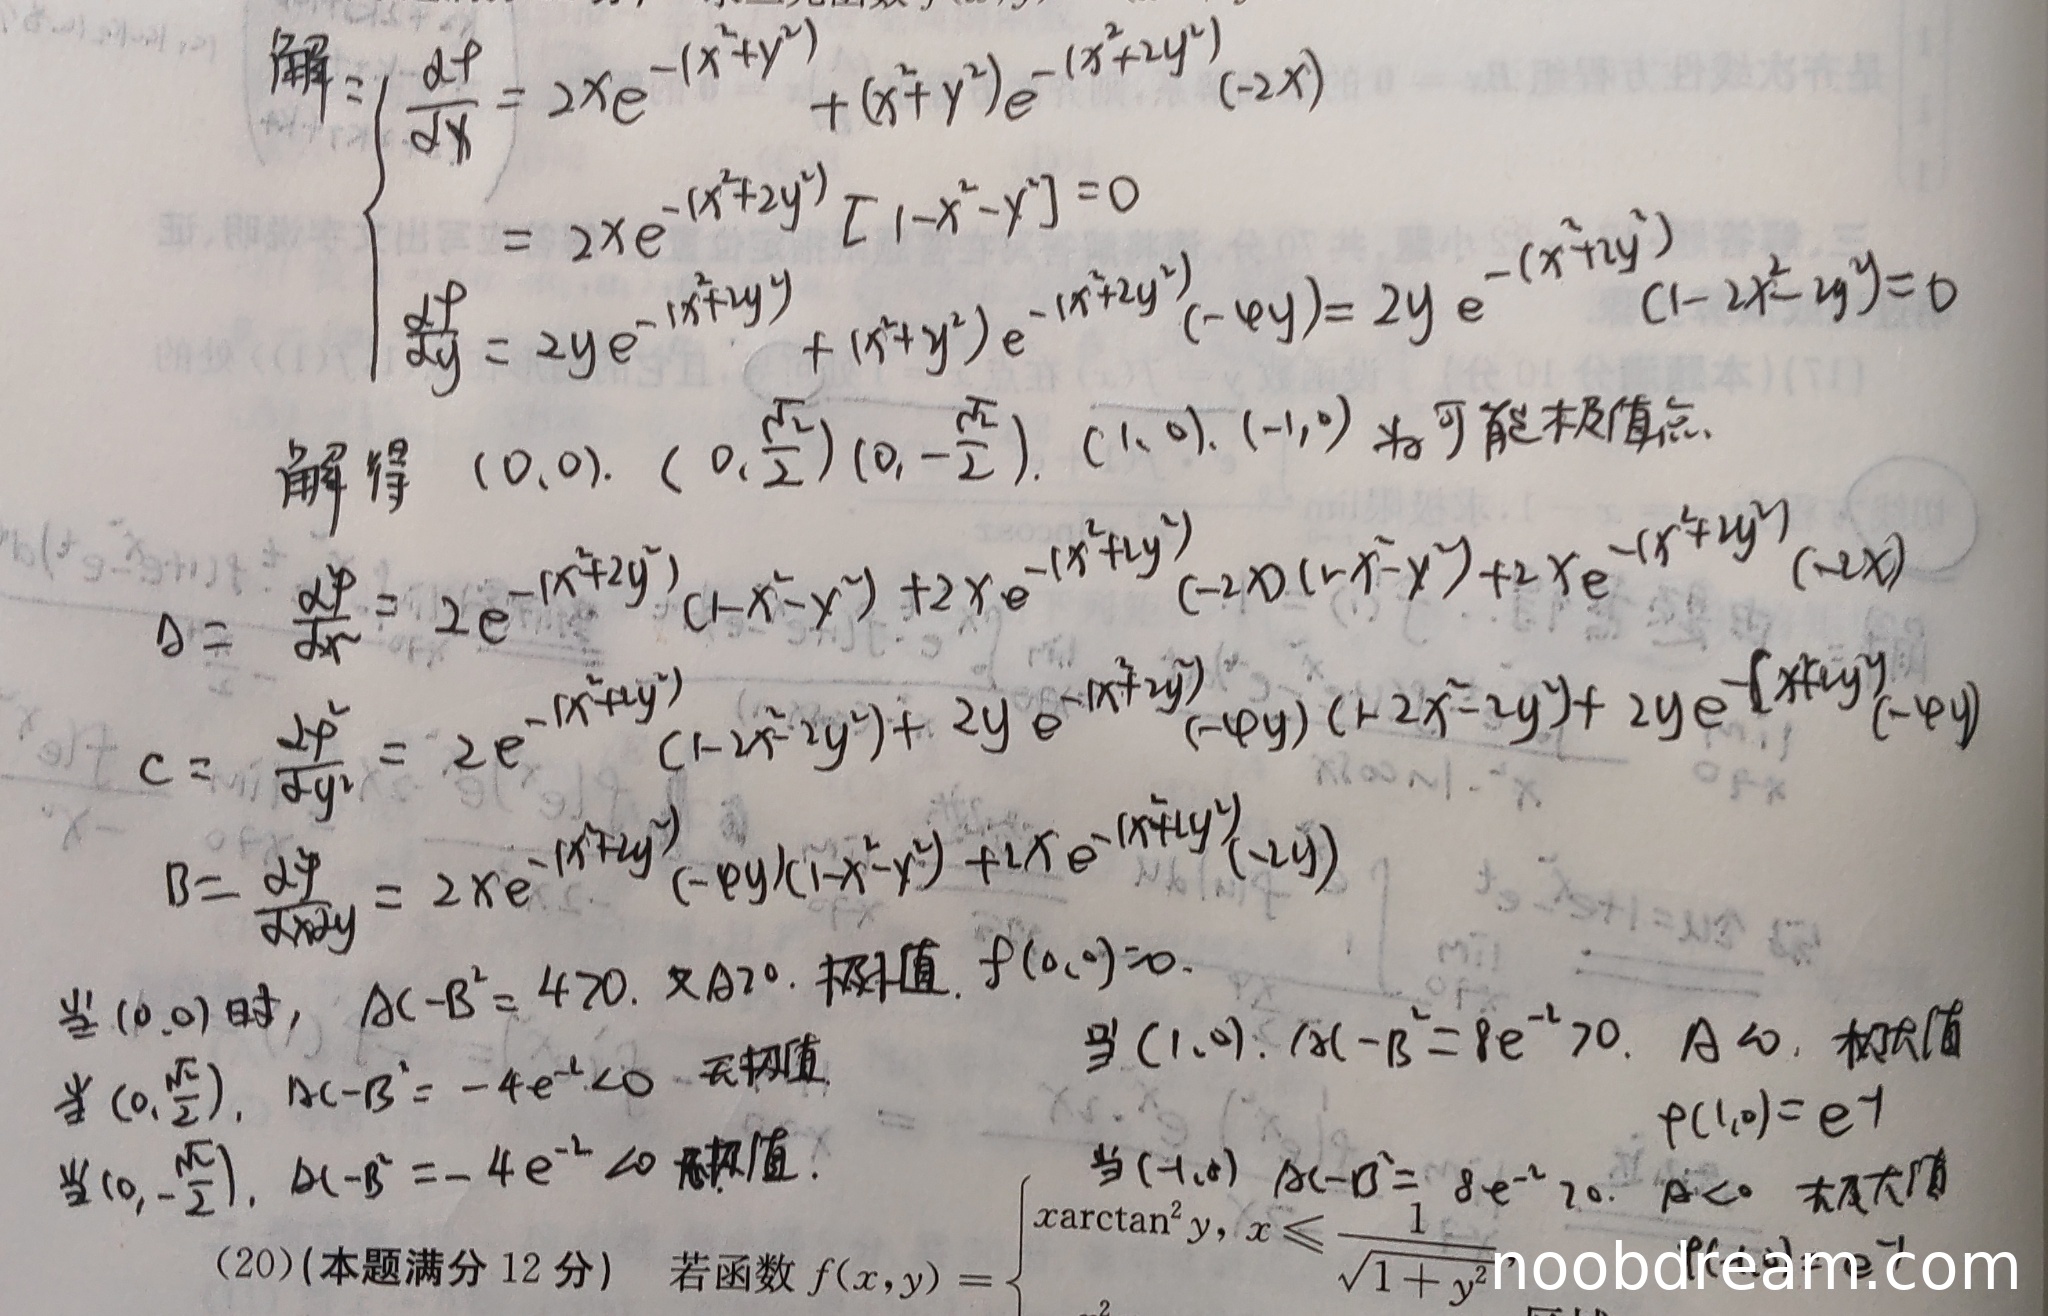 解: ∂f/∂x = 2xe^{-(x²+y²)} + (x²+y²)e^{-(x²+2y²)}(-2x)
= 2xe^{-(x²+2y²)}[1-x²-y²] = 0
∂f/∂y = 2ye^{-(x²+2y²)} + (x²+y²)e^{-(x²+2y²)}(-4y) = 2ye^{-(x²+2y²)}(1-2x²-2y²) = 0
解得 (0,0). (0,√2/2) (0,-√2/2). (1,0). (-1,0) 为可能极值点.
A = ∂²f/∂x² = 2e^{-(x²+2y²)}(1-x²-y²) + 2xe^{-(x²+2y²)}(-2x)(1-x²-y²) + 2xe^{-(x²+2y²)}(-2x)
C = ∂²f/∂y² = 2e^{-(x²+2y²)}(1-2x²-2y²) + 2ye^{-(x²+2y²)}(-4y)(1-2x²-2y²) + 2ye^{-(x²+2y²)}(-4y)
B = ∂²f/∂x∂y = 2xe^{-(x²+2y²)}(-4y)(1-x²-y²) + 2xe^{-(x²+2y²)}(-2y)
当(0,0)时, AC-B² = 4>0. 又A>0. 极小值. f(0,0)=0.
当(0,√2/2), AC-B² = -4e^{-2}<0 无极值.
当(0,-√2/2), AC-B² = -4e^{-2}<0 无极值.
当(1,0). AC-B² = 8e^{-2}>0. A<0, 极大值
f(1,0) = e^{-1}
当(-1,0) AC-B² = 8e^{-2}>0. A<0 极大值
f(-1,0) = e^{-1}
(20)(本题满分 12 分) 若函数 f(x,y) = { xarctan²y, x ≤ 1/√(1+y²),
noobdream.com